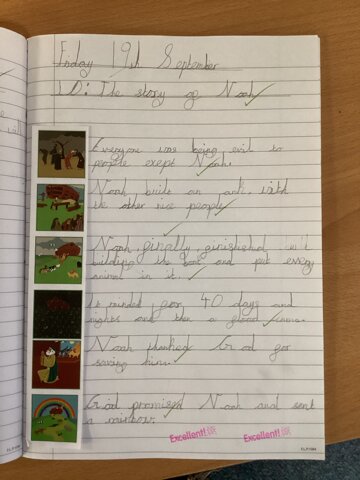 Friday 19th September
LO: The story of Noah
Everyone was being evil to
people exept Noah.
Noah built an ark with
the other nice people
Noah, finally, finished
building the boat and put every
animal in it.
It rained for 40 days and
nights and then a flood came.
Noah thanked God for
saving him.
God promised Noah and sent
a rainbow.
Excellent! Excellent!